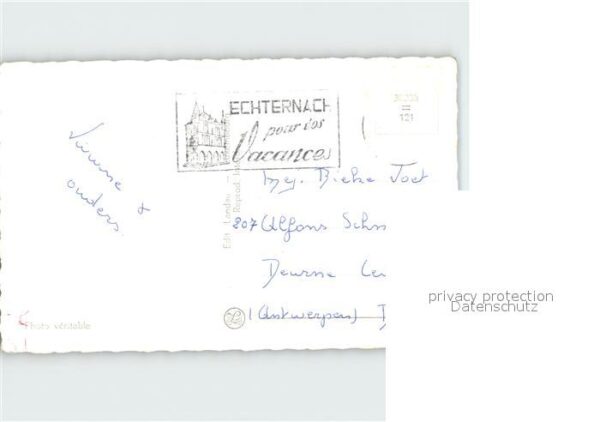 ECHTERNACH
pour vos
Vacances
30208
121
&
ouders
Mej. Joet
207 Alfons Schm
Deurne
(Antwerpen)
Edit. Landau
Reprod.
Photo véritable
privacy protection
Datenschutz